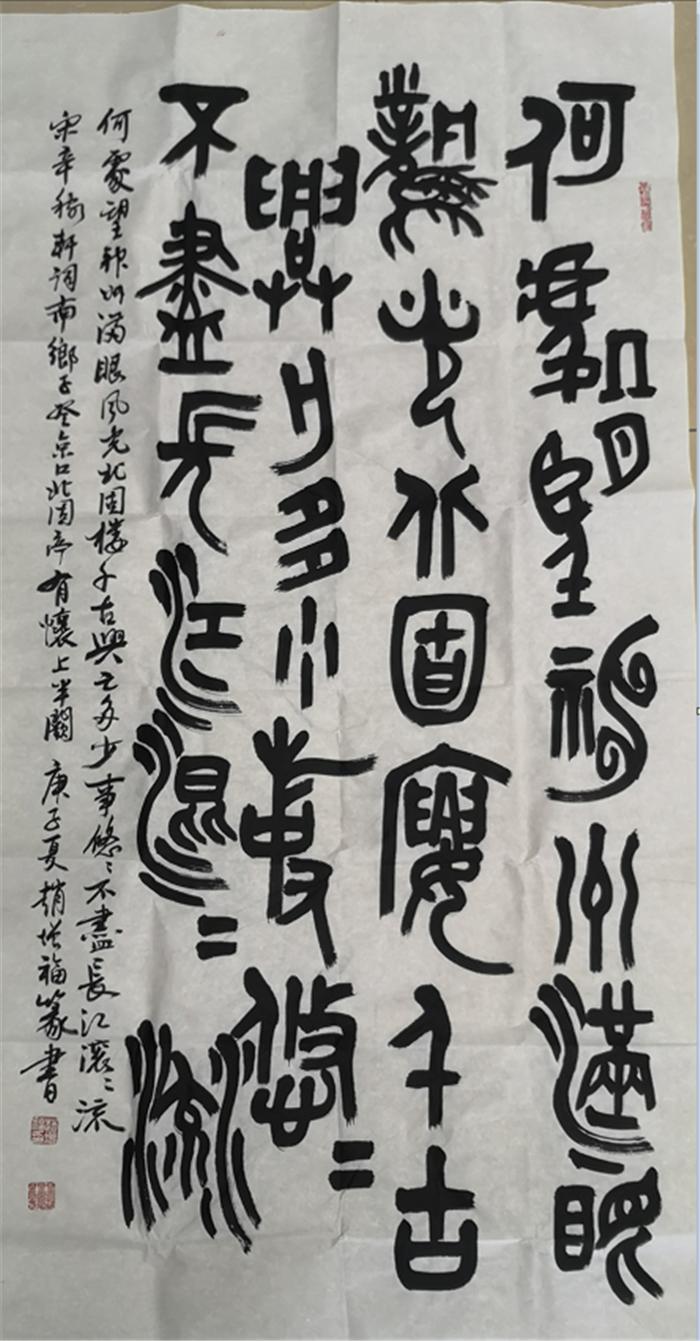 何處望神州滿眼
風光北固樓千古
興亡多少事悠〻
不盡長江滾〻流
何處望神州滿眼風光北固樓千古興亡多少事悠〻不盡長江滾〻流
宋辛稼軒詞南鄉子登京口北固亭有懷上半闋 庚子夏趙增福篆書